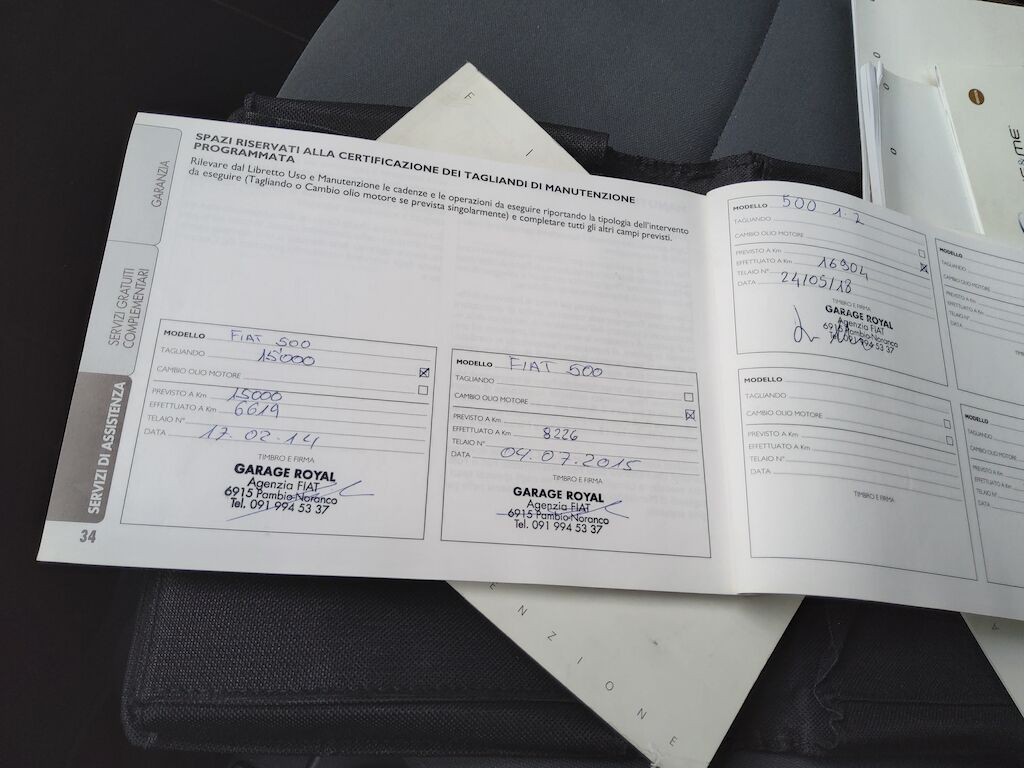 SPAZI RISERVATI ALLA CERTIFICAZIONE DEI TAGLIANDI DI MANUTENZIONE
PROGRAMMATA
Rilevare dal Libretto Uso e Manutenzione le cadenze e le operazioni da eseguire riportando la tipologia dell'intervento
da eseguire (Tagliando o Cambio olio motore se prevista singolarmente) e completare tutti gli altri campi previsti.
GARANZIA
SERVIZI GRATUITI
COMPLEMENTARI
SERVIZI DI ASSISTENZA
34
MODELLO FIAT 500
TAGLIANDO 15'000
CAMBIO OLIO MOTORE
PREVISTO A Km 15000
EFFETTUATO A Km 6619
TELAIO N°
DATA 17.02.14
TIMBRO E FIRMA
GARAGE ROYAL
Agenzia FIAT
6915 Pambio-Noranco
Tel. 091 994 53 37
MODELLO FIAT 500
TAGLIANDO
CAMBIO OLIO MOTORE
PREVISTO A Km
EFFETTUATO A Km 8226
TELAIO N°
DATA 09.07.2015
TIMBRO E FIRMA
GARAGE ROYAL
Agenzia FIAT
6915 Pambio-Noranco
Tel. 091 994 53 37
MODELLO 500 1.2
TAGLIANDO
CAMBIO OLIO MOTORE
PREVISTO A Km
EFFETTUATO A Km 16904
TELAIO N°
DATA 24/05/18
TIMBRO E FIRMA
GARAGE ROYAL
Agenzia FIAT
6915 Pambio-Noranco
Tel. 091 994 53 37
MODELLO
TAGLIANDO
CAMBIO OLIO MOTORE
PREVISTO A Km
EFFETTUATO A Km
TELAIO N°
DATA
TIMBRO E FIRMA
MODELLO
TAGLIANDO
CAMBIO OLIO MOTORE
PREVISTO A Km
EFFETTUATO A Km
TELAIO N°
DATA
MODELLO
TAGLIANDO
CAMBIO OLIO MOTORE
PREVISTO A Km
EFFETTUATO A Km
TELAIO N°
DATA
F I
E N Z I O N E
&ME